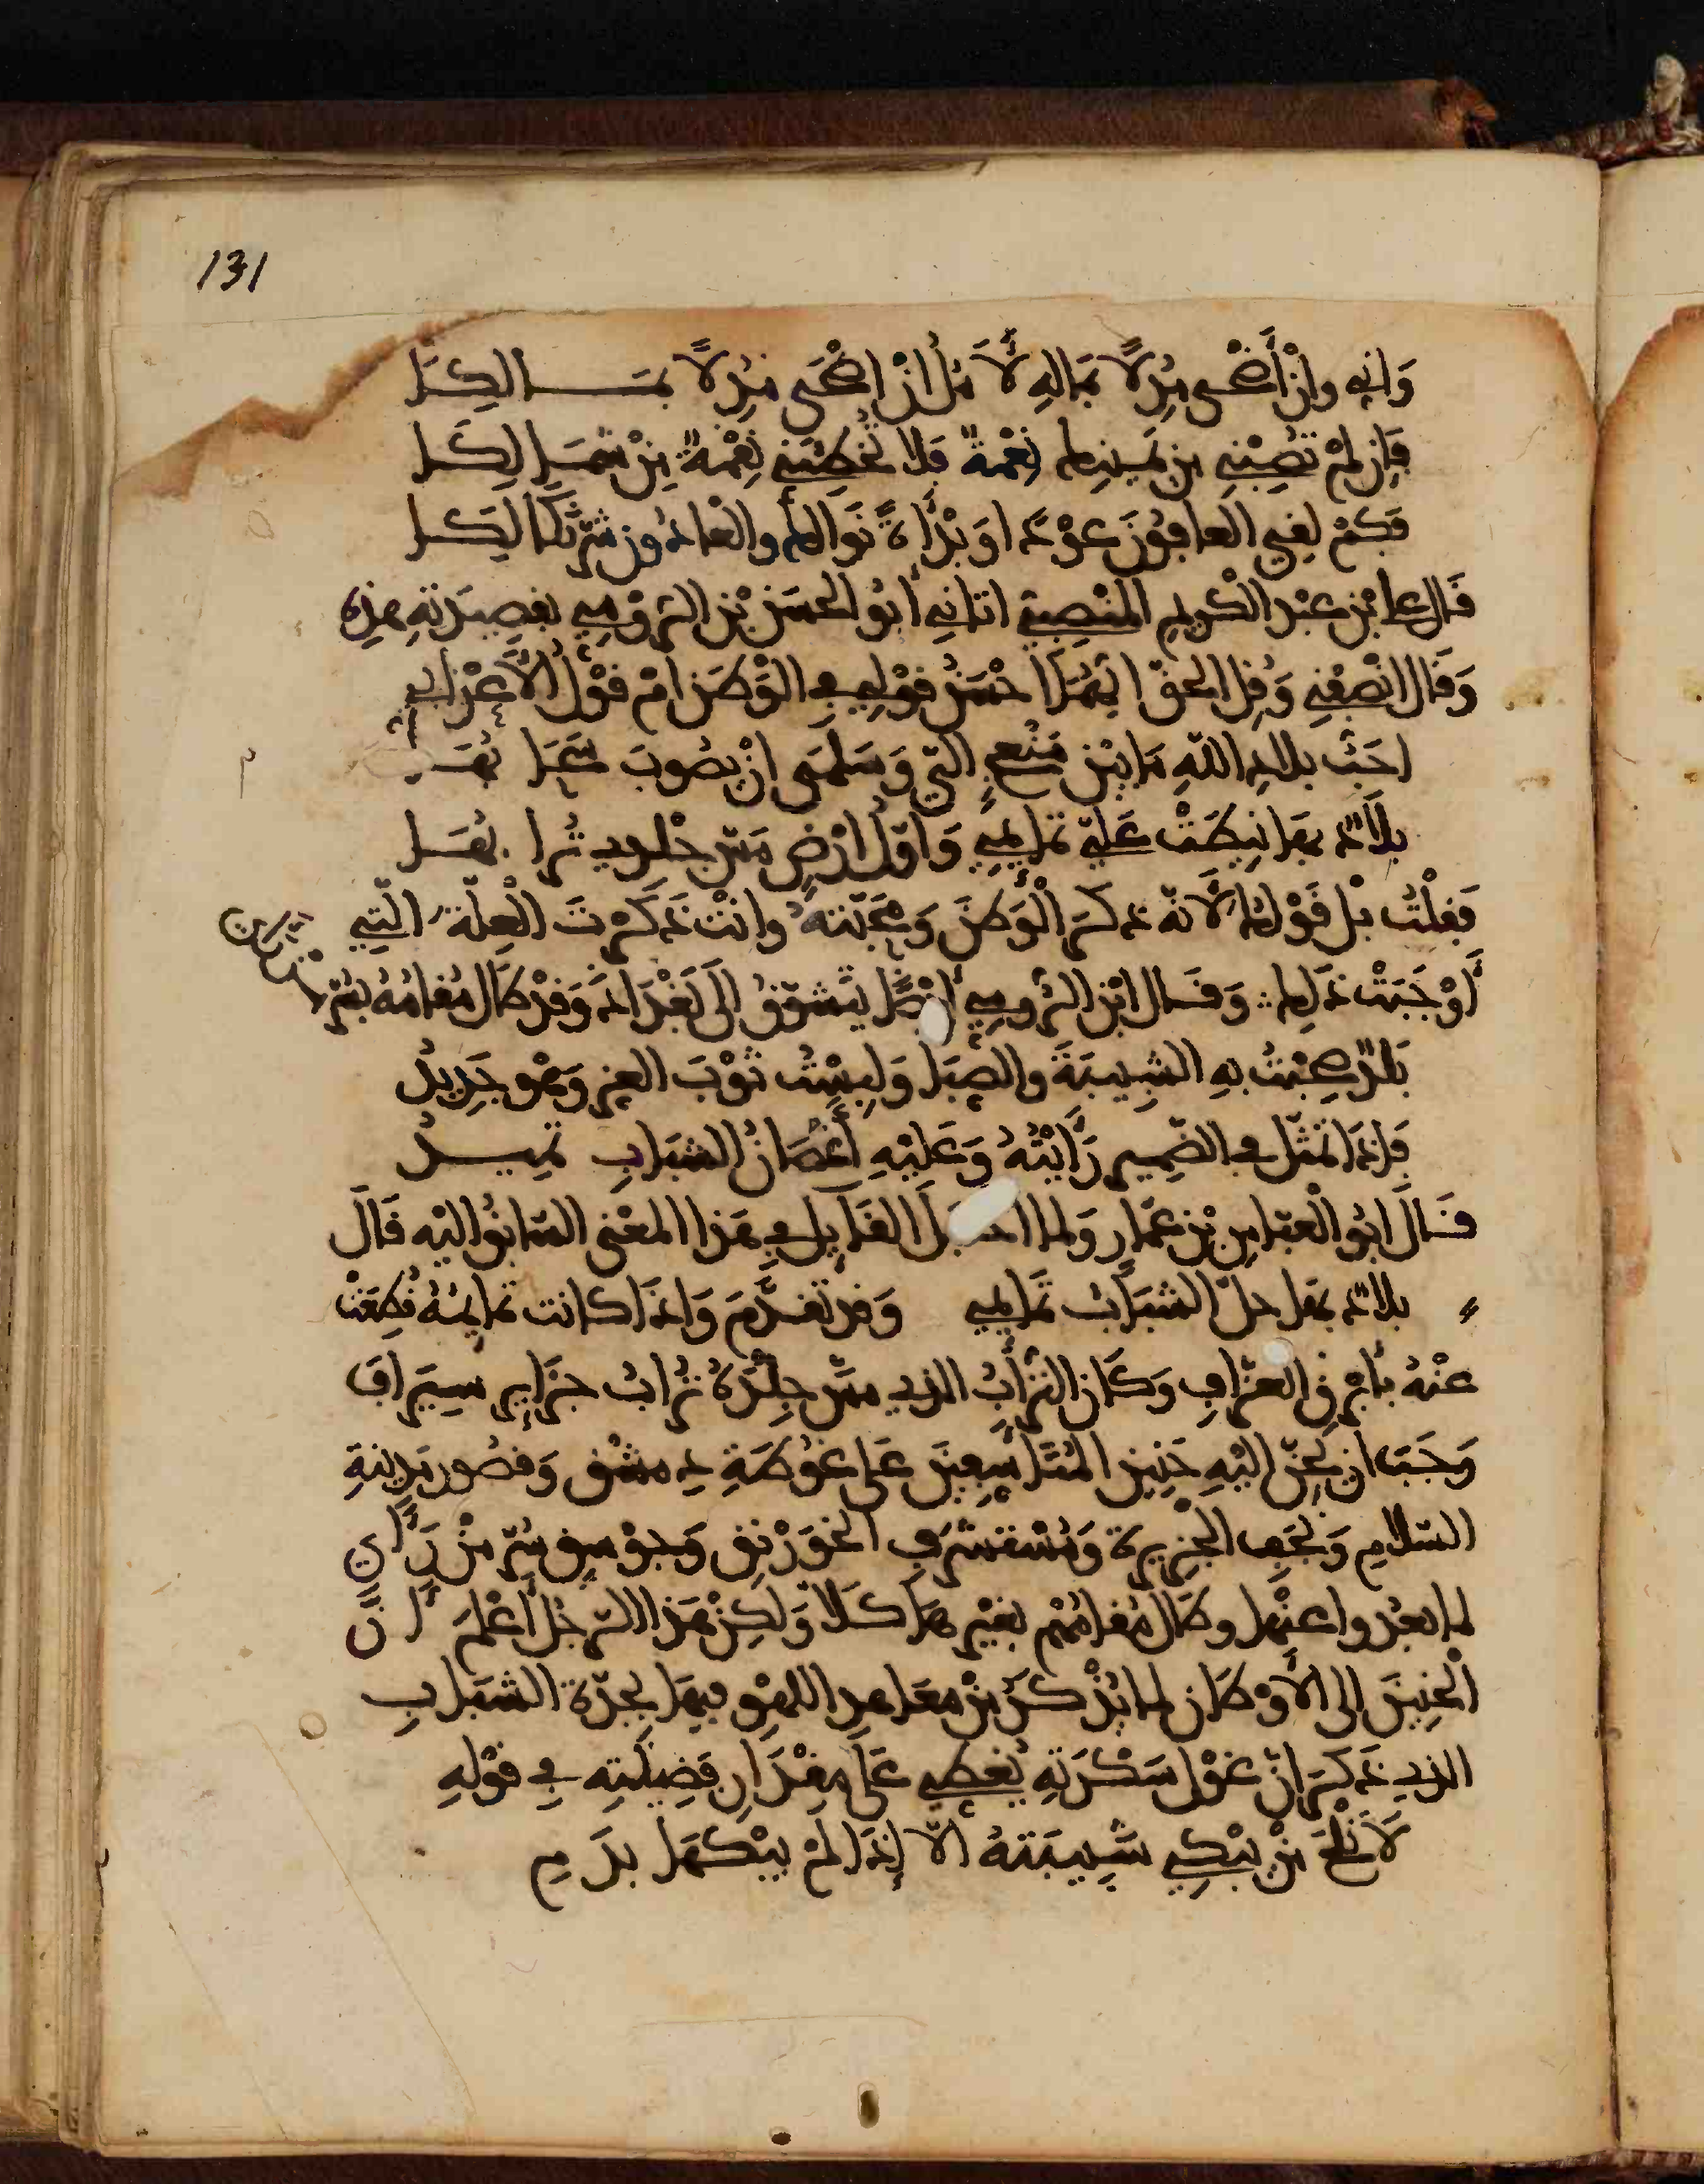 131
وَاني وانْ أضْحى مُدِلًّا بمَالهِ لَآمُلُ انْ اضْحَى مُدِلًّا بمَـــالِكَا
فَإن لمْ تُصِبْنِي مِن يَمينِكَ نِعْمَةٌ فَلا تُخْطِئَنِّي نِقْمَةٌ مِنْ شِمَالِكَا
فَكمْ لقِيَ العافُونَ عَوْدًا وَبَدْأةً نَوَالَكَ والعَادُونَ مُرَّ نَكَالِكَا
قَال علي بْن عَبْد الكَريم النصِيبي اتاني أبُو الحَسَن بْن الرُّومِي بقصِيدَتهِ هذِه
وَقَال انْصِفْنِي وَقُلِ الحقَّ ايّهُمَا احْسَنُ قوْلي في الوَطَن امْ قوْلُ الأعْرابي
احَبُّ بلادِ الله مَا بيْن مَنْعِجٍ اليَّ وَسَلْمَى انْ يصُوبَ سَحَابُهَا
بلادٌ بهَا نيطَتْ عَليّ تمَايمي وَاوّلُ ارْضٍ مَسّ جِلدي تُرابُهَا
فَقلْتُ بَلْ قَوْلك لأنّهُ ذكَرَ الْوَطَنَ وَمحَبّتَهُ وانْتَ ذكَرْتَ الْعِلّةَ الّتِي
أَوْجَبَتْ ذَلِك ∴ وَقَـال ابْن الرُّومِي أيْضًا يتَشوّقُ الَى بَغْدَادَ وَقدْ طَال مُقامُهُ بسُرّ
مَن رأى
بَلدٌ صَحِبْتُ بهِ الشبِيبَةَ والصِّبَا وَلبسْتُ ثوْبَ العيْشِ وَهْو جَدِيدُ
فَإذَا تمَثّلَ في الضّمِيرِ رَأيْتُهُ وَعَليْهِ أَغْصَانُ الشبَابِ تمِيـــدُ
قَـالَ ابُو الْعبّاسِ بْن عَمّار وَلما القَايل في هَذا المعْنى السّابقُ اليْه قَالَ
بلادٌ بهَا حلّ الشبَابُ تمَايمي وَقدْ تقدَّمَ وَاذَا كانت تمايمُهُ قُطِعَتْ
عنْهُ بأبْرق العزّافِ وَكَان الترَابُ الذي مسّ جِلْدَهُ تُرابُ جزَايرِ سِيرَافَ
وَجَبَ ان يَحِنّ اليْهِ حَنِينَ المُتَأسِّفِينَ عَلى غُوطَةِ دِمشْق وَقصُور مَدِينةِ
السّلامِ وَنجَف الجْزيرة وَمُسْتَشْرَفِ الخَوَرْنَقِ وَجوْسقِ سُرّ مَنْ رَأَى
لما بعُدوا عنْها وطَال مُقامُهُمْ بغيْرهَا كَلّا وَلكِنْ هَذا الرّجُل أعْلَمَ أَنَّ
الْحَنِينَ الى الأوْطَان لما يُذْكَرُ مِنْ مَعَاهِدِ اللّهْو فيهَا بحِدّةِ الشبَابِ
الذي ذَكَرَ أنّ غَوْل سَكْرَتِهِ يُغطّي عَلَى مقْدَارِ فَضِيلَتِهِ في قوْلهِ
لَا تَلْحَ مَنْ يَبْكي شَبِيبَتَهُ الّا إذَا لمْ يَبْكِهَا بدَمِ